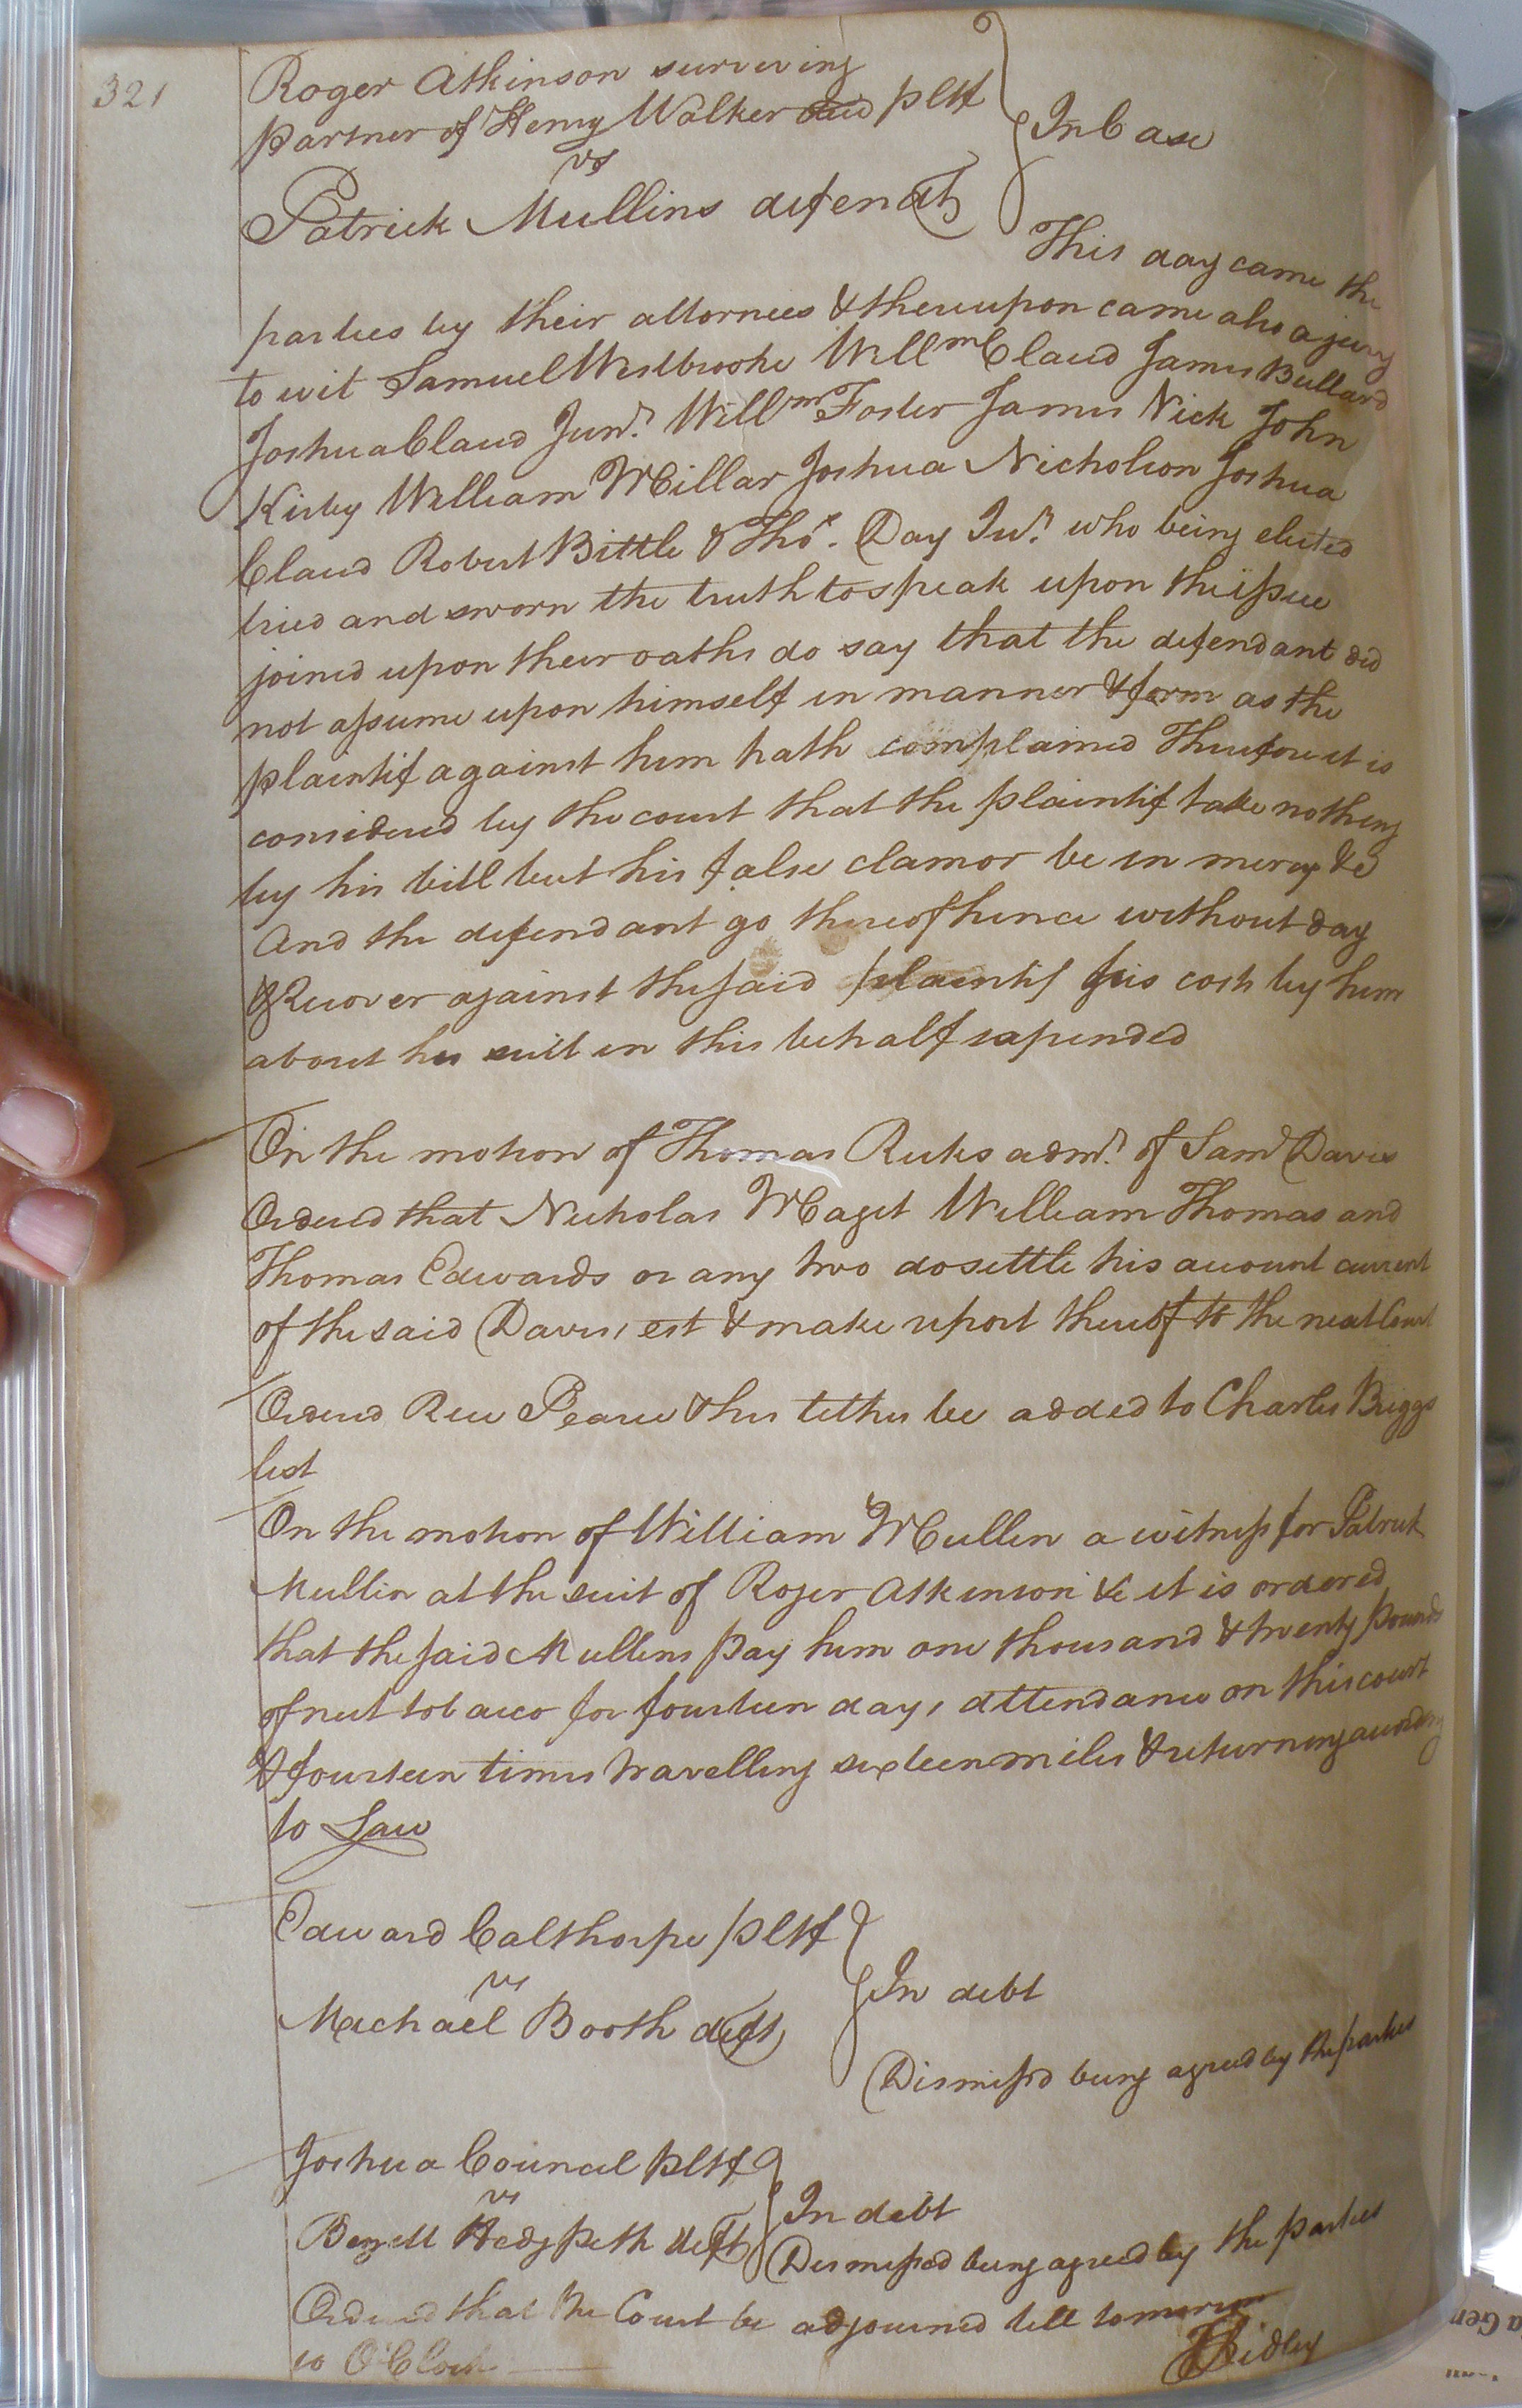 321
Roger Atkinson surviving
partner of Henry Walker decd pltf
vs
In Case
Patrick Mullins defendt
This day came the
parties by their attornies & thereupon came also a jury
to wit Samuel Westbrooke Willm Claud James Bullard
Joshua Claud Junr. Willm Foster James Nick John
Kirby William McCillar Joshua Nicholson Joshua
Claud Robert Bittle & Thos. Day Jur. who being elected
tried and sworn the truth to speak upon the issue
joined upon their oaths do say that the defendant did
not assume upon himself in manner & form as the
plaintif against him hath complained Therefore it is
considered by the court that the plaintif take nothing
by his bill but his false clamor be in mercy &c
And the defendant go thereof hence without day
& Recover against the said plaintif his costs by him
about his suit in this behalf expended
On the motion of Thomas Ricks admr. of Saml Davis
Ordered that Nicholas Maget William Thomas and
Thomas Edwards or any two do settle his account current
of the said Davis's est & make report thereof to the next Court
Ordered Rew Pearce & his tithes be added to Charles Briggs
list
On the motion of William McCullin a witness for Patrick
Mullin at the suit of Roger Atkinson &c it is ordered
that the said Mullins pay him one thousand & twenty pounds
of nett tobacco for fourteen days attendance on this court
& fourteen times travelling sixteen miles & returning according
to Law
Edward Calthorpe pltf
vs
In debt
Machael Booth deft
Dismissd being agreed by the parties
Joshua Councel pltf
vs
In debt
Hedgpeth deft
Dismissed being agreed by the parties
Ordered that the Court be adjourned till tomorrow
10 O'Clock
Ridley